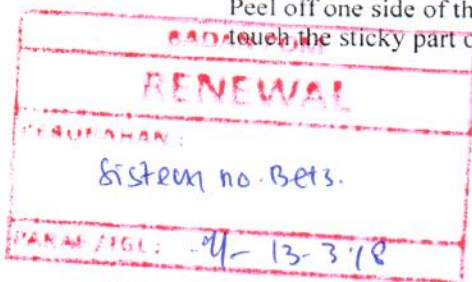 Peel off one side of th
touch the sticky part o
BADAN POM
RENEWAL
PERUBAHAN :
Sistem no. Bets.
PARAF / TGL : 13-3-18